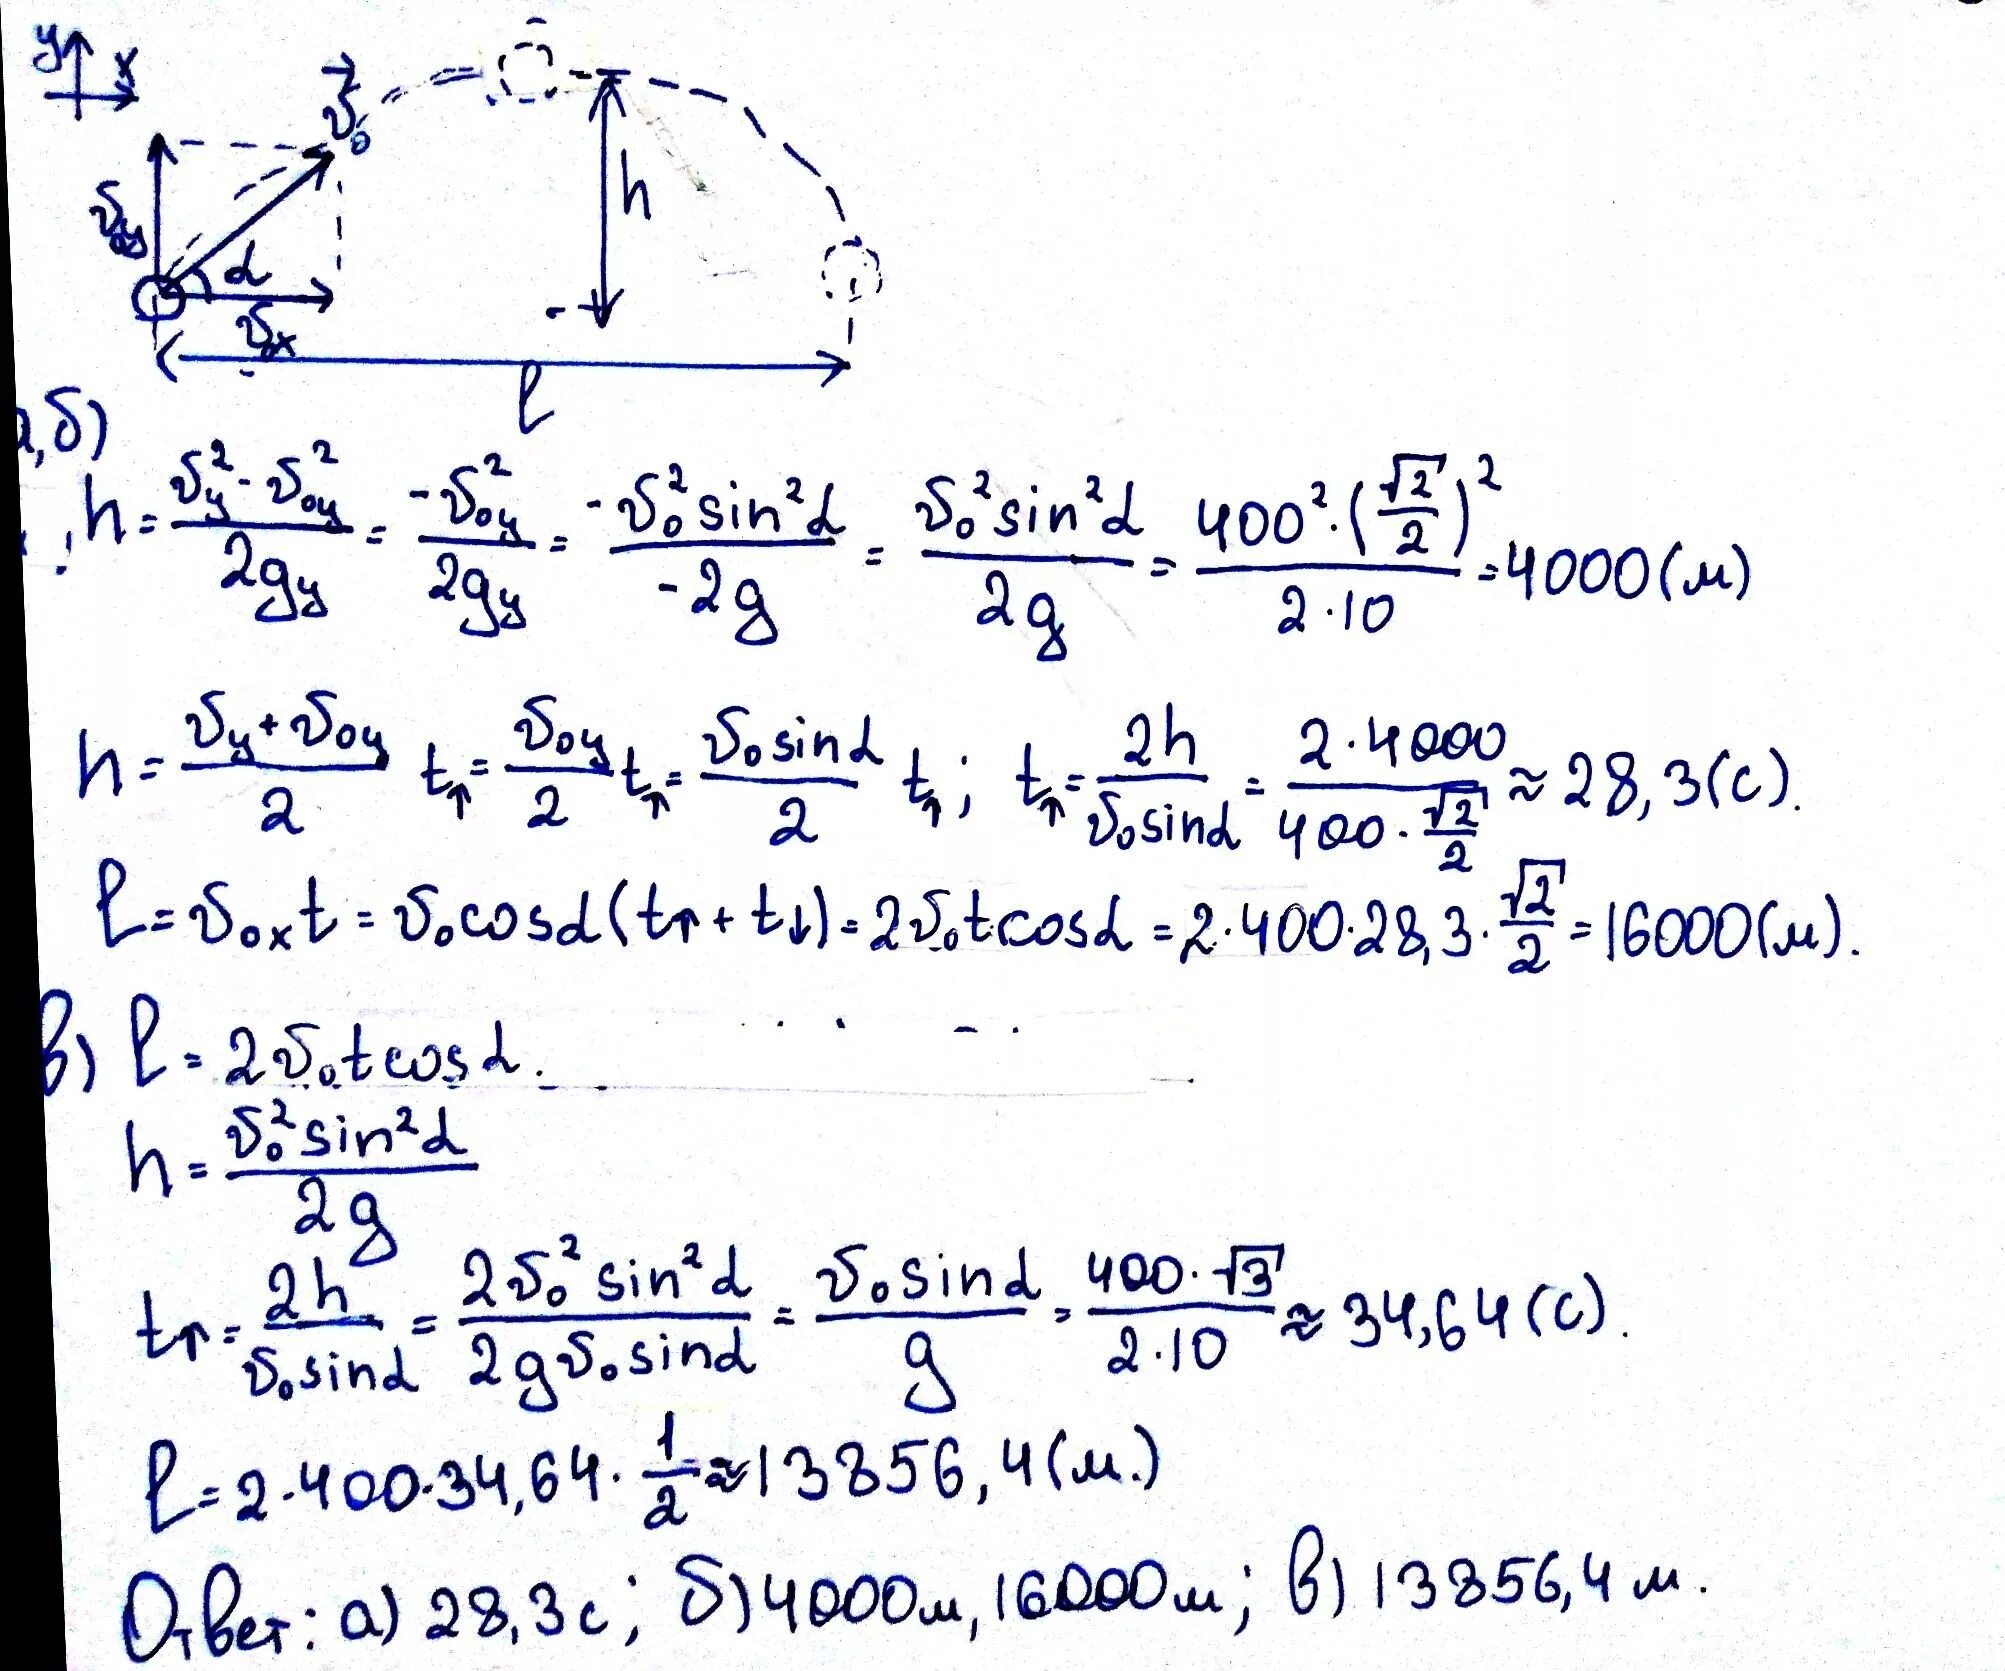 y x
v⃗₀
v₀y
h
α
v₀x
l
а,б)
h = (v_y² - v₀y²)/(2g_y) = (-v₀y²)/(2g_y) = (-v₀² sin²α)/(-2g) = (v₀² sin²α)/(2g) = (400² · (√2/2)²)/(2·10) = 4000(м)
h = (v_y + v₀y)/2 t↑ = v₀y/2 t↑ = (v₀ sinα)/2 t↑; t↑ = 2h/(v₀ sinα) = (2·4000)/(400·√2/2) ≈ 28,3(с).
l = v₀x t = v₀cosα(t↑ + t↓) = 2v₀tcosα = 2·400·28,3·√2/2 = 16000(м).
в) l = 2v₀tcosα.
h = (v₀² sin²α)/(2g)
t↑ = 2h/(v₀ sinα) = (2v₀² sin²α)/(2g v₀ sinα) = (v₀ sinα)/g = (400·√3)/(2·10) ≈ 34,64(с).
l = 2·400·34,64·1/2 ≈ 13856,4(м.)
Ответ: а) 28,3с; б) 4000м, 16000м; в) 13856,4м.